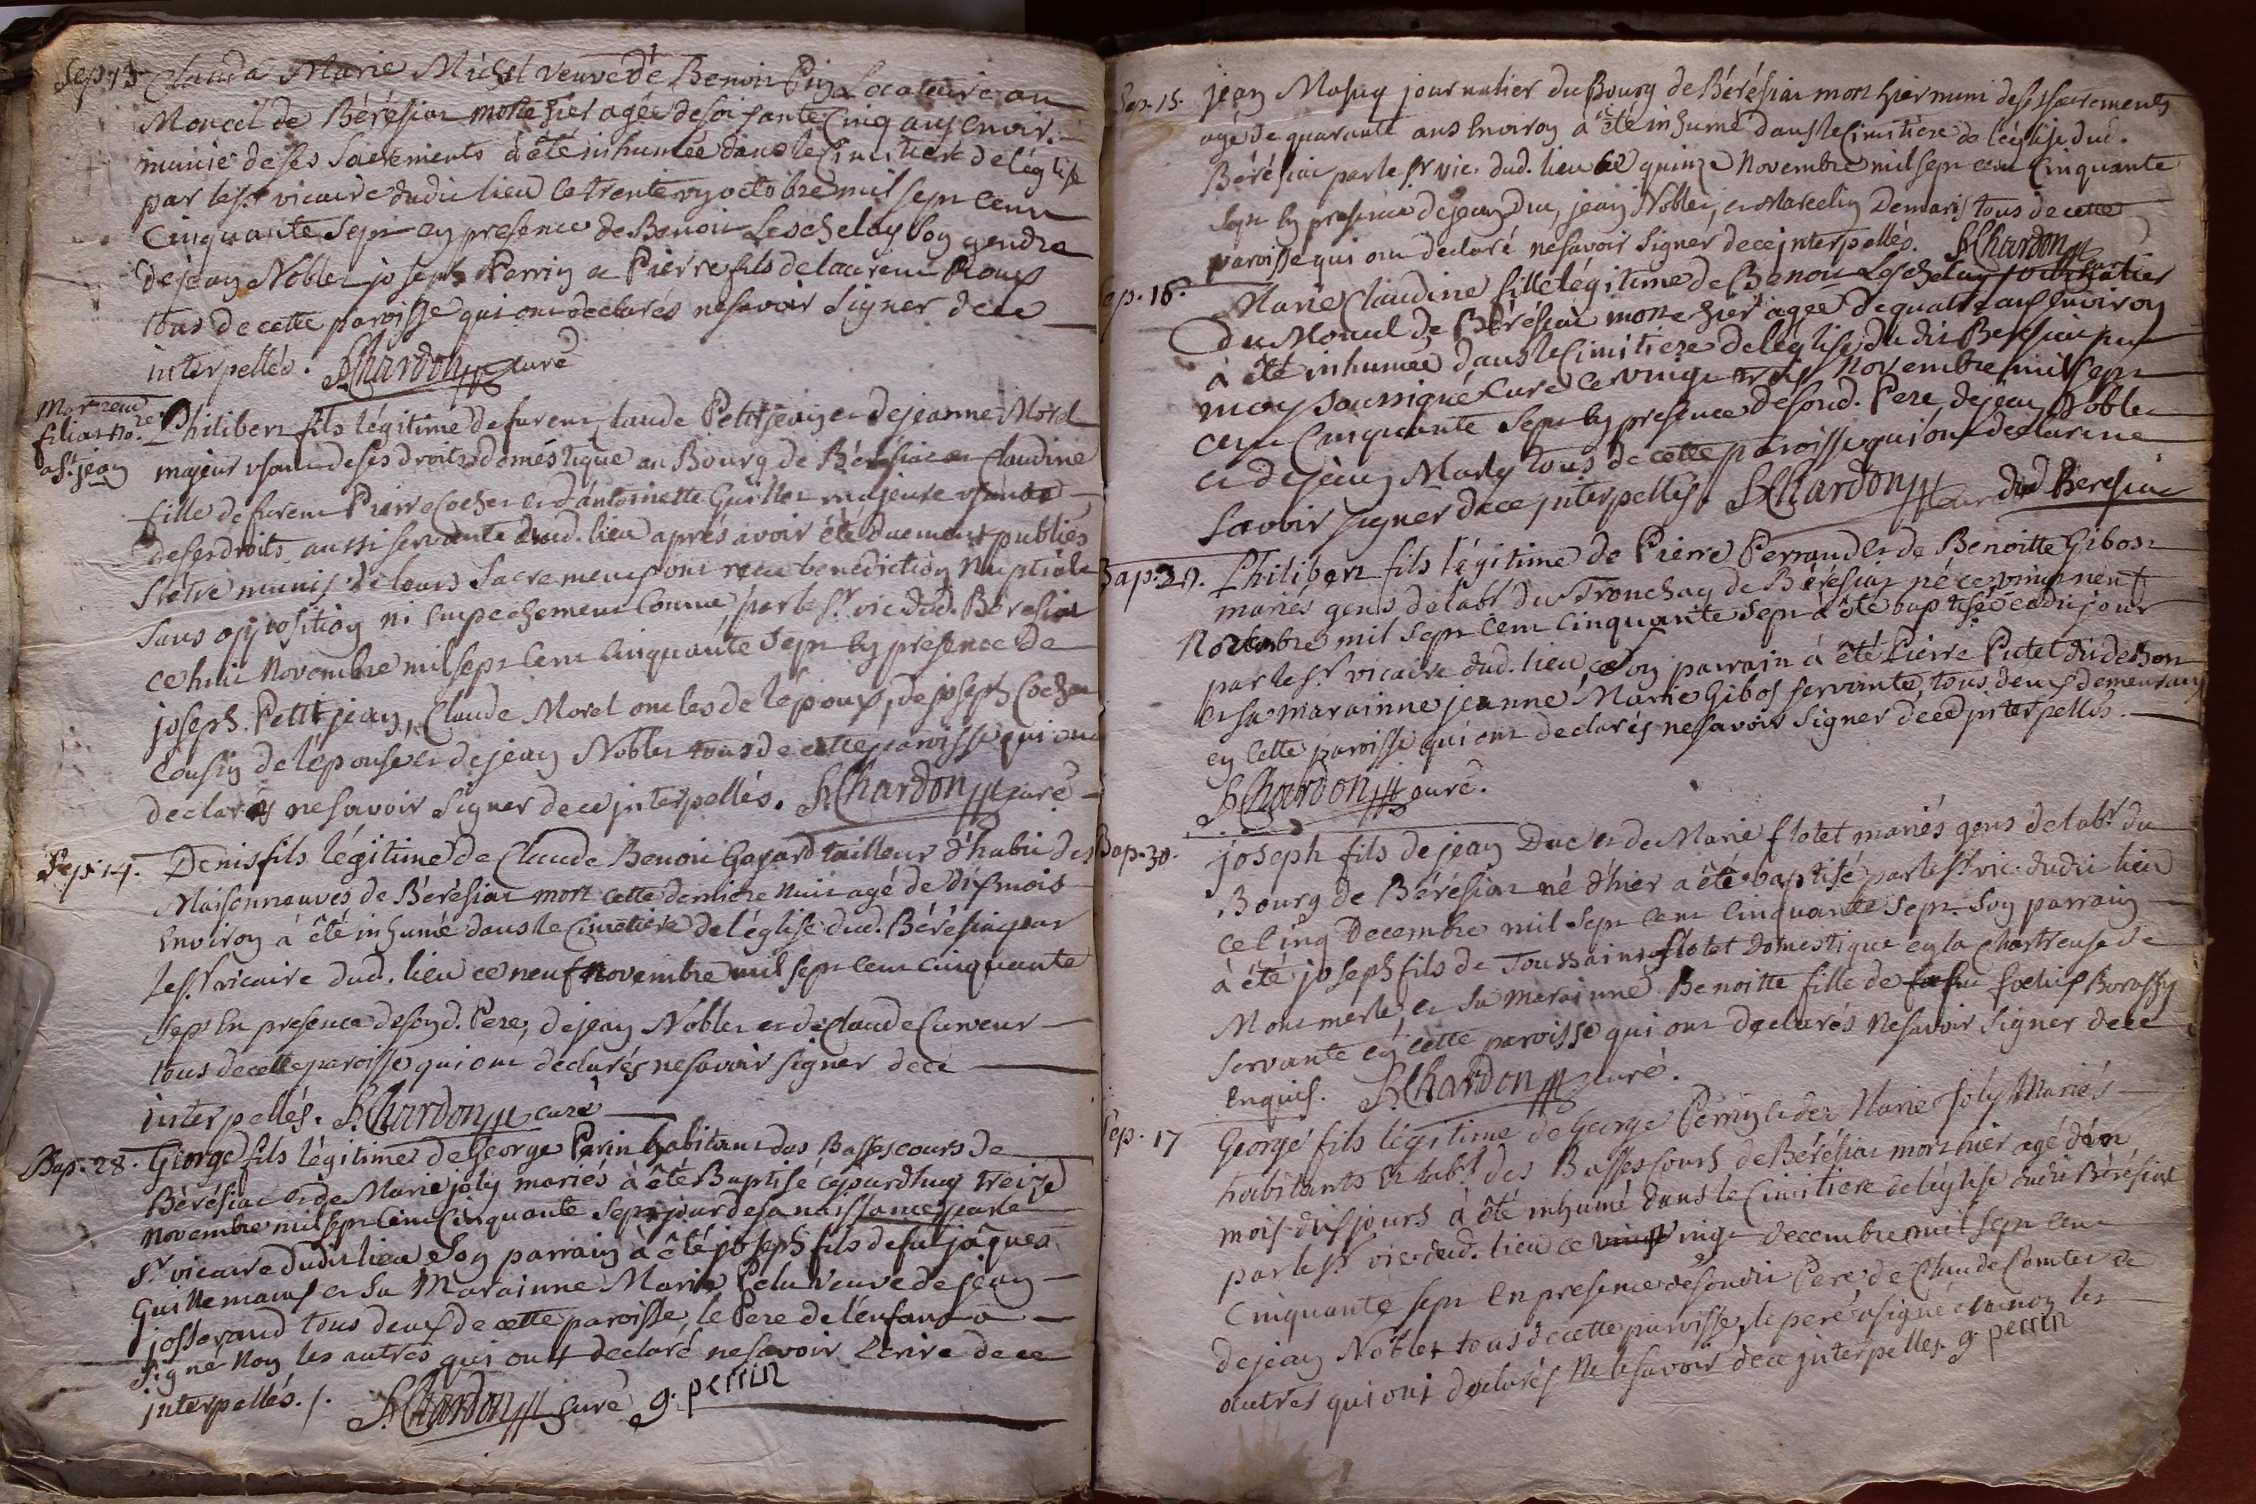 Sep. 13. Clauda Marie Michel veuve de Benoit Locataire au
Moncel de Bérésiat morte hier agée de soixante Cinq ans Environ
munie de ses sacrements a été inhumée dans le Cimitiere de l'église
par le sr. vicaire dudit lieu le trente un octobre mil sept cent
Cinquante sept en presence de Benoit son gendre
de jean Noblet joseph Perrin et Pierre fils de laurent Roux
tous de cette paroisse qui ont declarés ne savoir signer de ce
interpellés. B. Chardon curé
Philibert fils légitime de furent Claude Petitjean et de jeanne Morel
a St. jean majeur usant de ses droits doméstique au Bourg de Bérésiat et Claudine
fille de furent Pierre Cochet et d'antoinette Guillet majeure usante
de ses droits aussi servante dud. lieu aprés avoir été duement publiés
s'être munis de leurs Sacrements ont reçu benediction Nuptiale
sans opposition ni Empechement Connu, par le Sr. vic. dud. Bérésiat
ce huit Novembre mil sept Cent Cinquante sept en presence de
joseph Petitjean, Claude Morel oncles de l'époux, de joseph Cochet
Cousin de l'épouse et de jean Noblet tous de cette paroisse qui ont
declarés ne savoir signer de ce interpellés. B. Chardon curé
Sep. 14. Denis fils légitime de Claude Benoit Gayard tailleur d'habit des
Maisonneuves de Bérésiat mort cette derniere nuit agé de dix mois
Environ à été inhumé dans le Cimetiere de l'église dud. Bérésiat par
le Sr. vicaire dud. lieu ce neuf Novembre mil sept cent cinquante
sept En presence de sond. Pere, de jean Noblet et de Claude
tous de cette paroisse qui ont declarés ne savoir signer de ce
interpellés. B. Chardon curé
Bap. 28. George fils légitime de George Perin habitant des Basses cours de
Bérésiat et de Marie joly mariés à été Baptisé ce jourdhuy treize
Novembre mil sept Cent Cinquante sept jour de sa naissance par le
Sr. vicaire dudit lieu Son parrain à été joseph fils de fut jâques
Guillemaux et sa Marainne Marie veuve de jean
josserand tous deux de cette paroisse, le Pere de l'enfant a
signé Non les autres qui ont declaré ne savoir Ecrire de ce
interpellés. /. B. Chardon curé g. perrin
Sep. 15. jean journalier du Bourg de Bérésiat mort hier muni de ses sacrements
agé de quarante ans Environ à été inhumé dans le Cimitiere de l'église dud.
Bérésiat par le Sr. vic. dud. lieu ce quinze Novembre mil sept cent Cinquante
sept En presence de jean Duc, jean Noblet, et Marcelin Demaris tous de cette
paroisse qui ont declaré ne savoir signer de ce interpellés. B. Chardon
Sep. 16. Marie Claudine fille légitime de Benoit journalier
du Moncel de Bérésiat morte hier agée de quatre ans Environ
à été inhumée dans le Cimitiere de l'église dudit Beresiat par
moy soussigné Curé ce vingt Novembre mil sept
cent Cinquante sept En presence de sond. Pere, de jean Noblet
et de jean tous de cette paroisse qui ont declaré ne
savoir signer de ce interpellés. B. Chardon curé dud Beresiat
Philibert fils légitime de Pierre Perraud et de Benoitte Gibost
mariés gens de lab.r du Tronchay de Bérésiat né ce vingt neuf
Novembre mil sept Cent Cinquante sept à été baptisé cedit jour
par le Sr. vicaire dud. lieu, Son parrain à été Pierre Putet
et sa marainne jeanne Marie Gibos servante, tous deux demeurant
en cette paroisse qui ont declarés ne savoir signer de ce interpellés.
B. Chardon curé.
Bap. 30. joseph fils de jean Duc et de Marie flotet mariés gens de lab.r du
Bourg de Bérésiat né d'hier a été baptisé par le Sr. vic. dudit lieu
ce Cinq Decembre mil sept Cent Cinquante sept. Son parrain
à été joseph fils de Toussaint flotet Domestique en la Chartreuse de
Montmerle et sa Marainne Benoitte fille de
servante en cette paroisse qui ont declarés ne savoir signer de ce
Enquis. B. Chardon curé.
Sep. 17 George fils légitime de George Perrin et de Marie joly Mariés
habitants et lab.rs des Basses Cours de Bérésiat mort hier agé d'un
mois dix jours à été inhumé dans le Cimitiere de l'église dudit Bérésiat
par le Sr. vic. dud. lieu ce vingt Decembre mil sept Cent
Cinquante sept En presence de sondit Pere de Claude Comtet et
de jean Noblet tous de cette paroisse, le pere a signé et non les
autres qui ont declarés Ne le savoir de ce interpellés. g. perrin